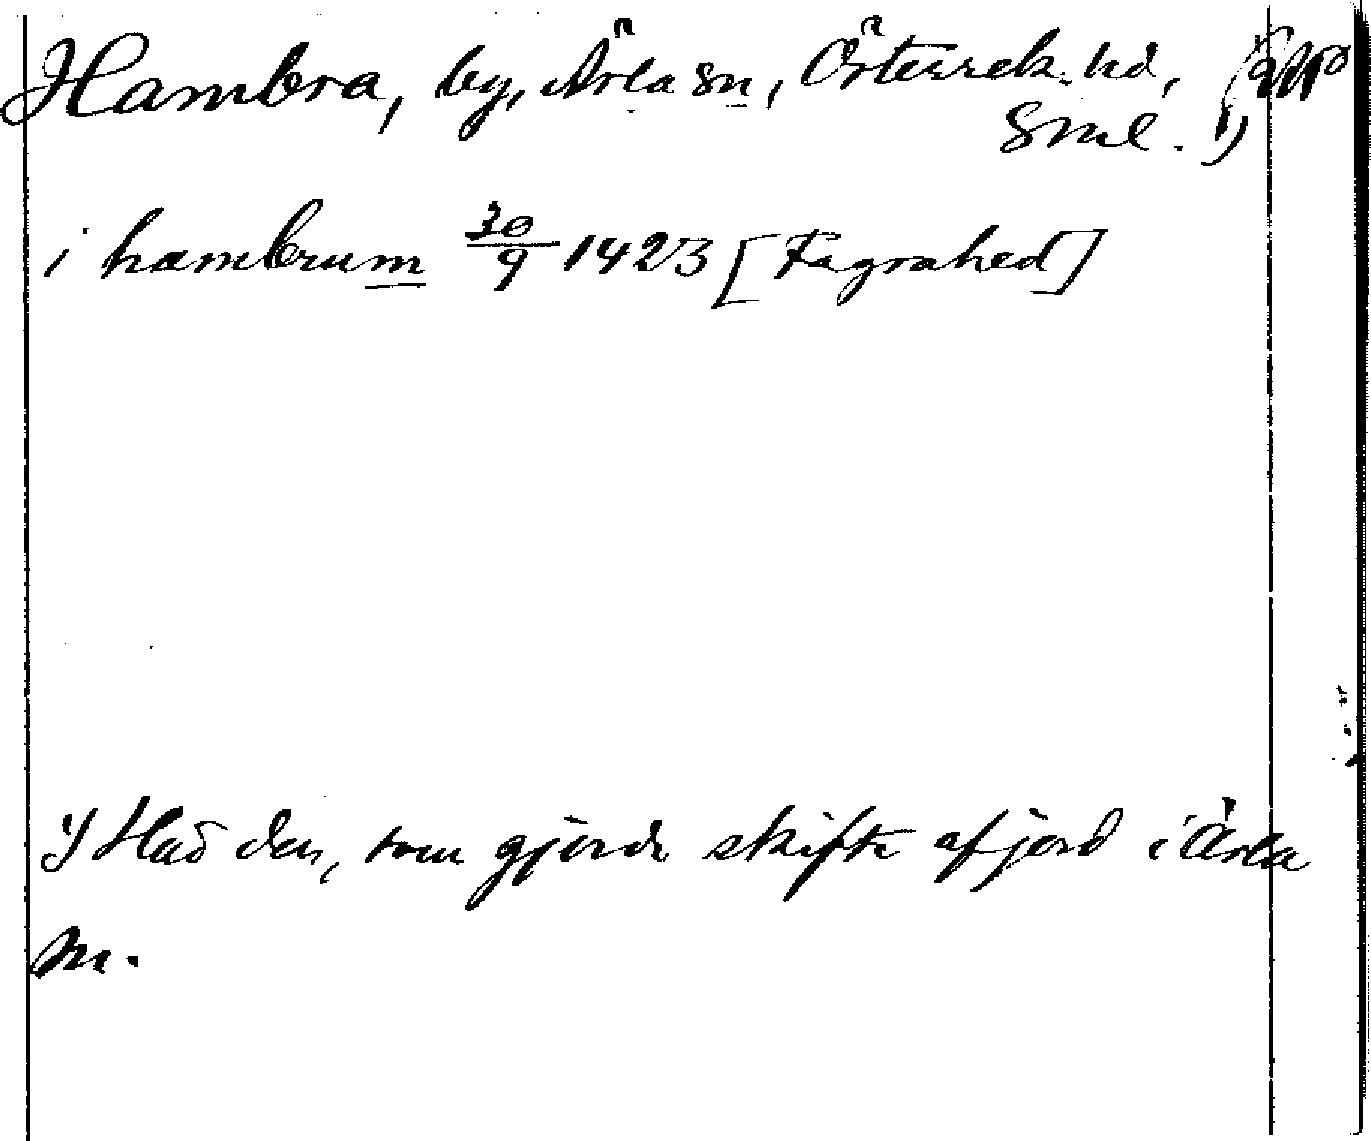 Hambra, by, Ärla sn, Österrek. hd,
Sml. 1)
i hambrum 30/9 1423 [Fagrahed]
1) Had den, som gjorde skifte af jord i Ärla
sn.